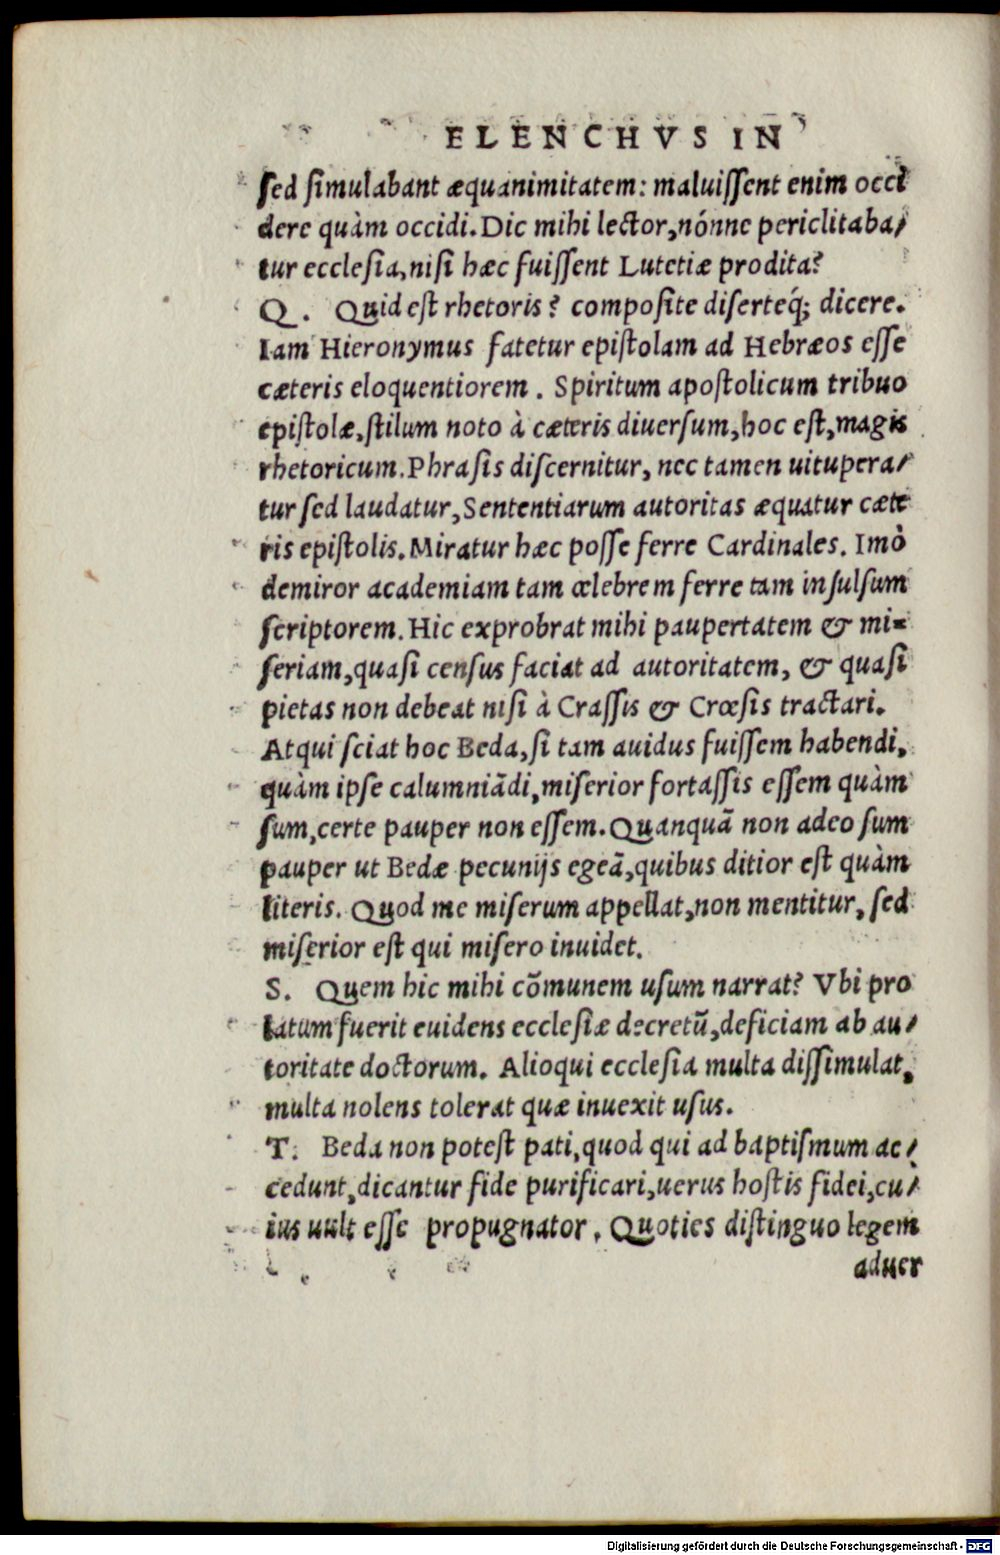 ELENCHVS IN
sed simulabant æquanimitatem: maluissent enim occi
dere quàm occidi. Dic mihi lector, nónne periclitaba/
tur ecclesia, nisi hæc fuissent Lutetiæ prodita?
Q. Quid est rhetoris? composite diserteq́; dicere.
Iam Hieronymus fatetur epistolam ad Hebræos esse
cæteris eloquentiorem. Spiritum apostolicum tribuo
epistolæ, stilum noto à cæteris diuersum, hoc est, magis
rhetoricum. Phrasis discernitur, nec tamen uitupera/
tur sed laudatur, Sententiarum autoritas æquatur cæte
ris epistolis. Miratur hæc posse ferre Cardinales. Imò
demiror academiam tam celebrem ferre tam insulsum
scriptorem. Hic exprobrat mihi paupertatem & mi=
seriam, quasi census faciat ad autoritatem, & quasi
pietas non debeat nisi à Crassis & Crœsis tractari.
Atqui sciat hoc Beda, si tam auidus fuissem habendi,
quàm ipse calumniãdi, miserior fortassis essem quàm
sum, certe pauper non essem. Quanquã non adeo sum
pauper ut Bedæ pecunijs egeã, quibus ditior est quàm
literis. Quod me miserum appellat, non mentitur, sed
miserior est qui misero inuidet.
S. Quem hic mihi cõmunem usum narrat? Vbi pro
latum fuerit euidens ecclesiæ decretũ, deficiam ab au/
toritate doctorum. Alioqui ecclesia multa dissimulat,
multa nolens tolerat quæ inuexit usus.
T. Beda non potest pati, quod qui ad baptismum ac/
cedunt, dicantur fide purificari, uerus hostis fidei, cu/
ius uult esse propugnator. Quoties distinguo legem
aduer
Digitalisierung gefördert durch die Deutsche Forschungsgemeinschaft - DFG